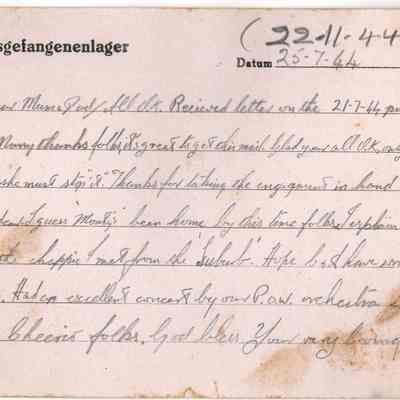 sgefangenenlager
(22-11-44
Datum 25-7-44
Mum & Dad, All O.K. Received letter on the 21-7-44
Many thanks folks it's great to get this mail. Glad your all O.K.
she must stop it. Thanks for taking the engagement in hand
I guess "Monty's" been home by this time folks, I explain
chappie I met from the "Suburb". Hope to have
Had an excellent concert by our P.O.W. orchestra
Cheerio folks. God bless. Your very loving